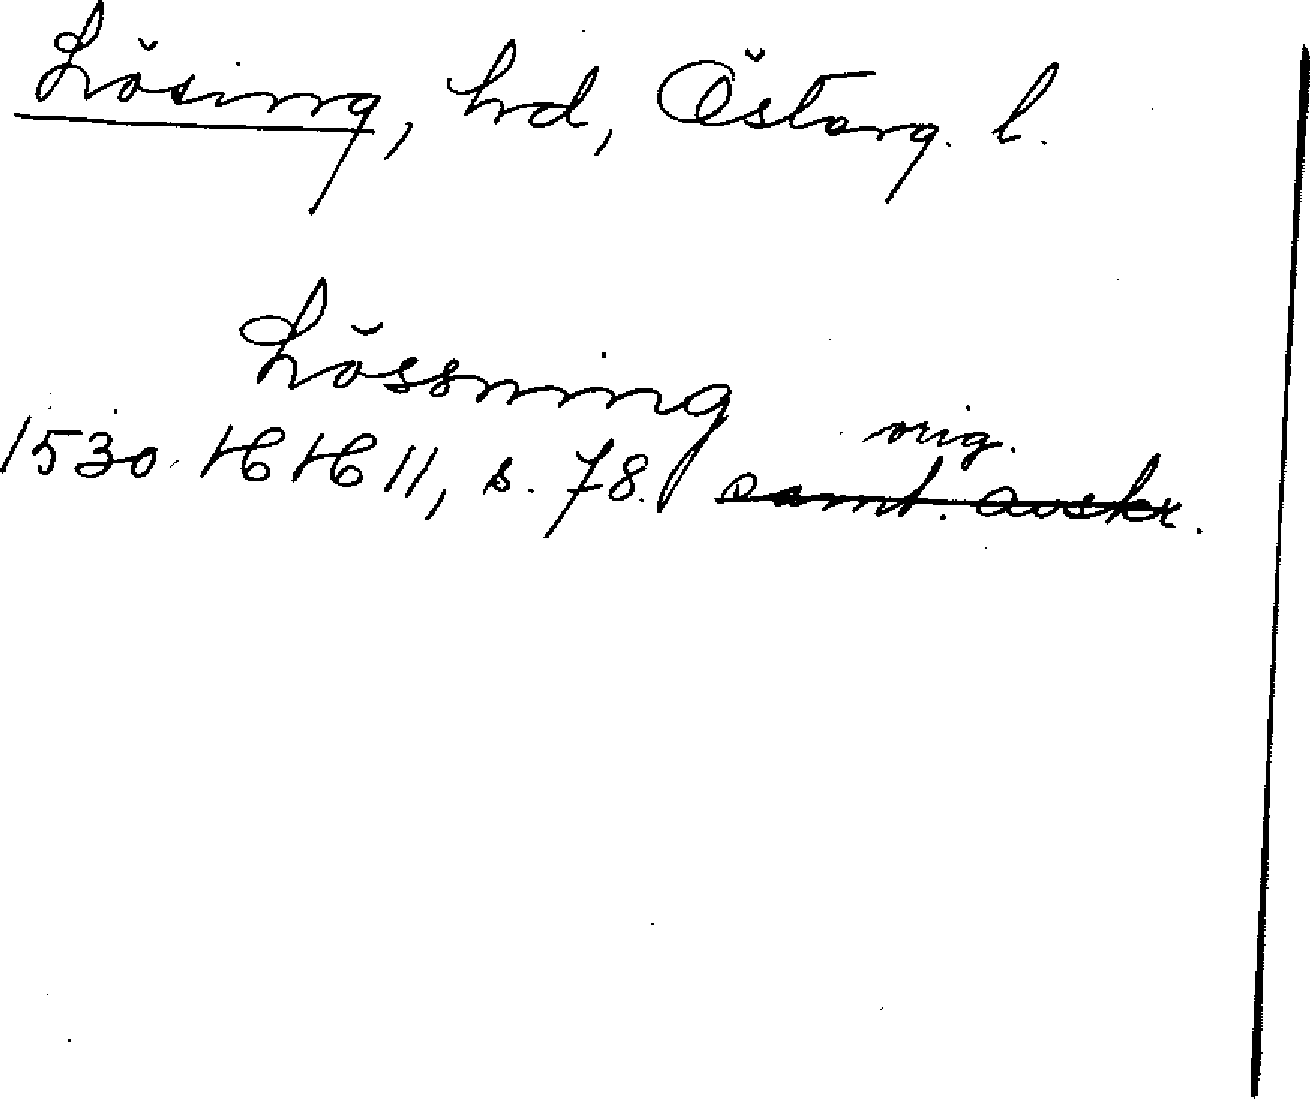 Lösing, hd, Östorg. l.
Lössning
orig.
1530 HH 11, s. 78. samt. avskr.